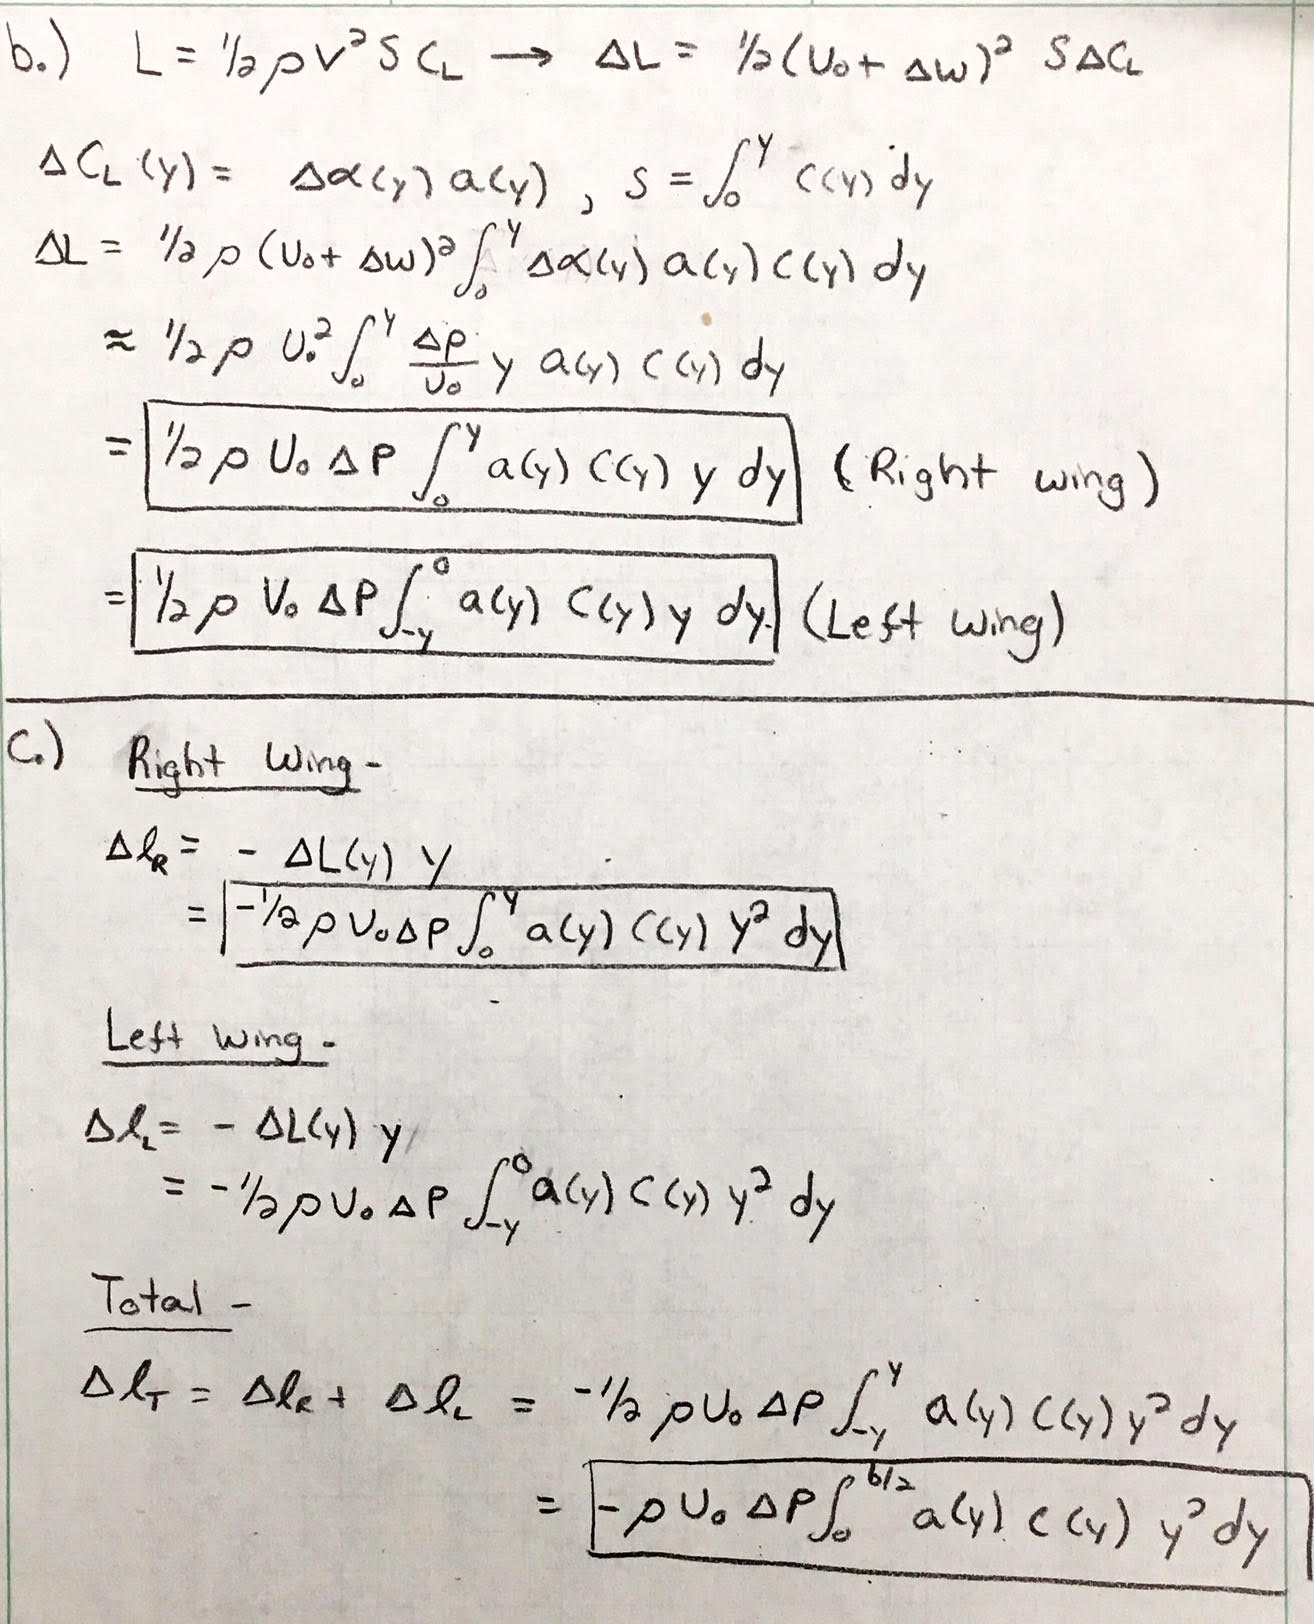 b.) L = 1/2 ρ V² S C_L → ΔL = 1/2 (U₀ + Δw)² S ΔC_L
ΔC_L (y) = Δα(y) a(y) , S = ∫₀^y c(y) dy
ΔL = 1/2 ρ (U₀ + Δw)² ∫₀^y Δα(y) a(y) c(y) dy
≈ 1/2 ρ U₀² ∫₀^y Δp/U₀ y a(y) c(y) dy
= 1/2 ρ U₀ Δp ∫₀^y a(y) c(y) y dy (Right wing)
= 1/2 ρ U₀ Δp ∫_{-y}^0 a(y) c(y) y dy (Left wing)
c.) Right Wing -
Δl_R = - ΔL(y) y
= -1/2 ρ U₀ Δp ∫₀^y a(y) c(y) y² dy
Left wing -
Δl_L = - ΔL(y) y
= -1/2 ρ U₀ Δp ∫_{-y}^0 a(y) c(y) y² dy
Total -
Δl_T = Δl_R + Δl_L = -1/2 ρ U₀ Δp ∫_{-y}^y a(y) c(y) y² dy
= -ρ U₀ Δp ∫₀^{b/2} a(y) c(y) y² dy